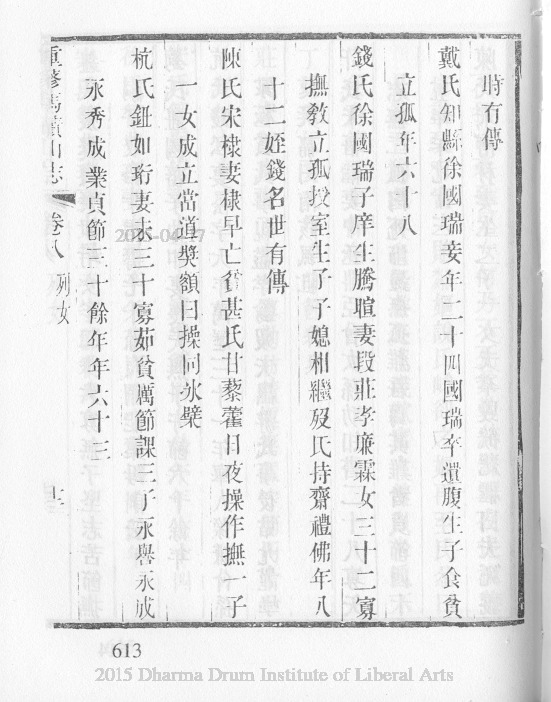 時有傳
戴氏知縣徐國瑞妾年二十四國瑞卒遺腹生子食貧
立孤年六十八
錢氏徐國瑞子庠生騰暄妻段莊孝廉霖女三十二寡
撫教立孤授室生子子媳相繼歿氏持齋禮佛年八
十二姪錢名世有傳
陳氏宋棣妻棣早亡貧甚氏甘藜藿日夜操作撫一子
一女成立當道獎額曰操同氷檗
杭氏鈕如珩妻未三十寡茹貧厲節課三子永譽永成
永秀成業貞節三十餘年年六十三
重修馬蹟山志 卷八 列女 十一
2015-04-17
613
2015 Dharma Drum Institute of Liberal Arts